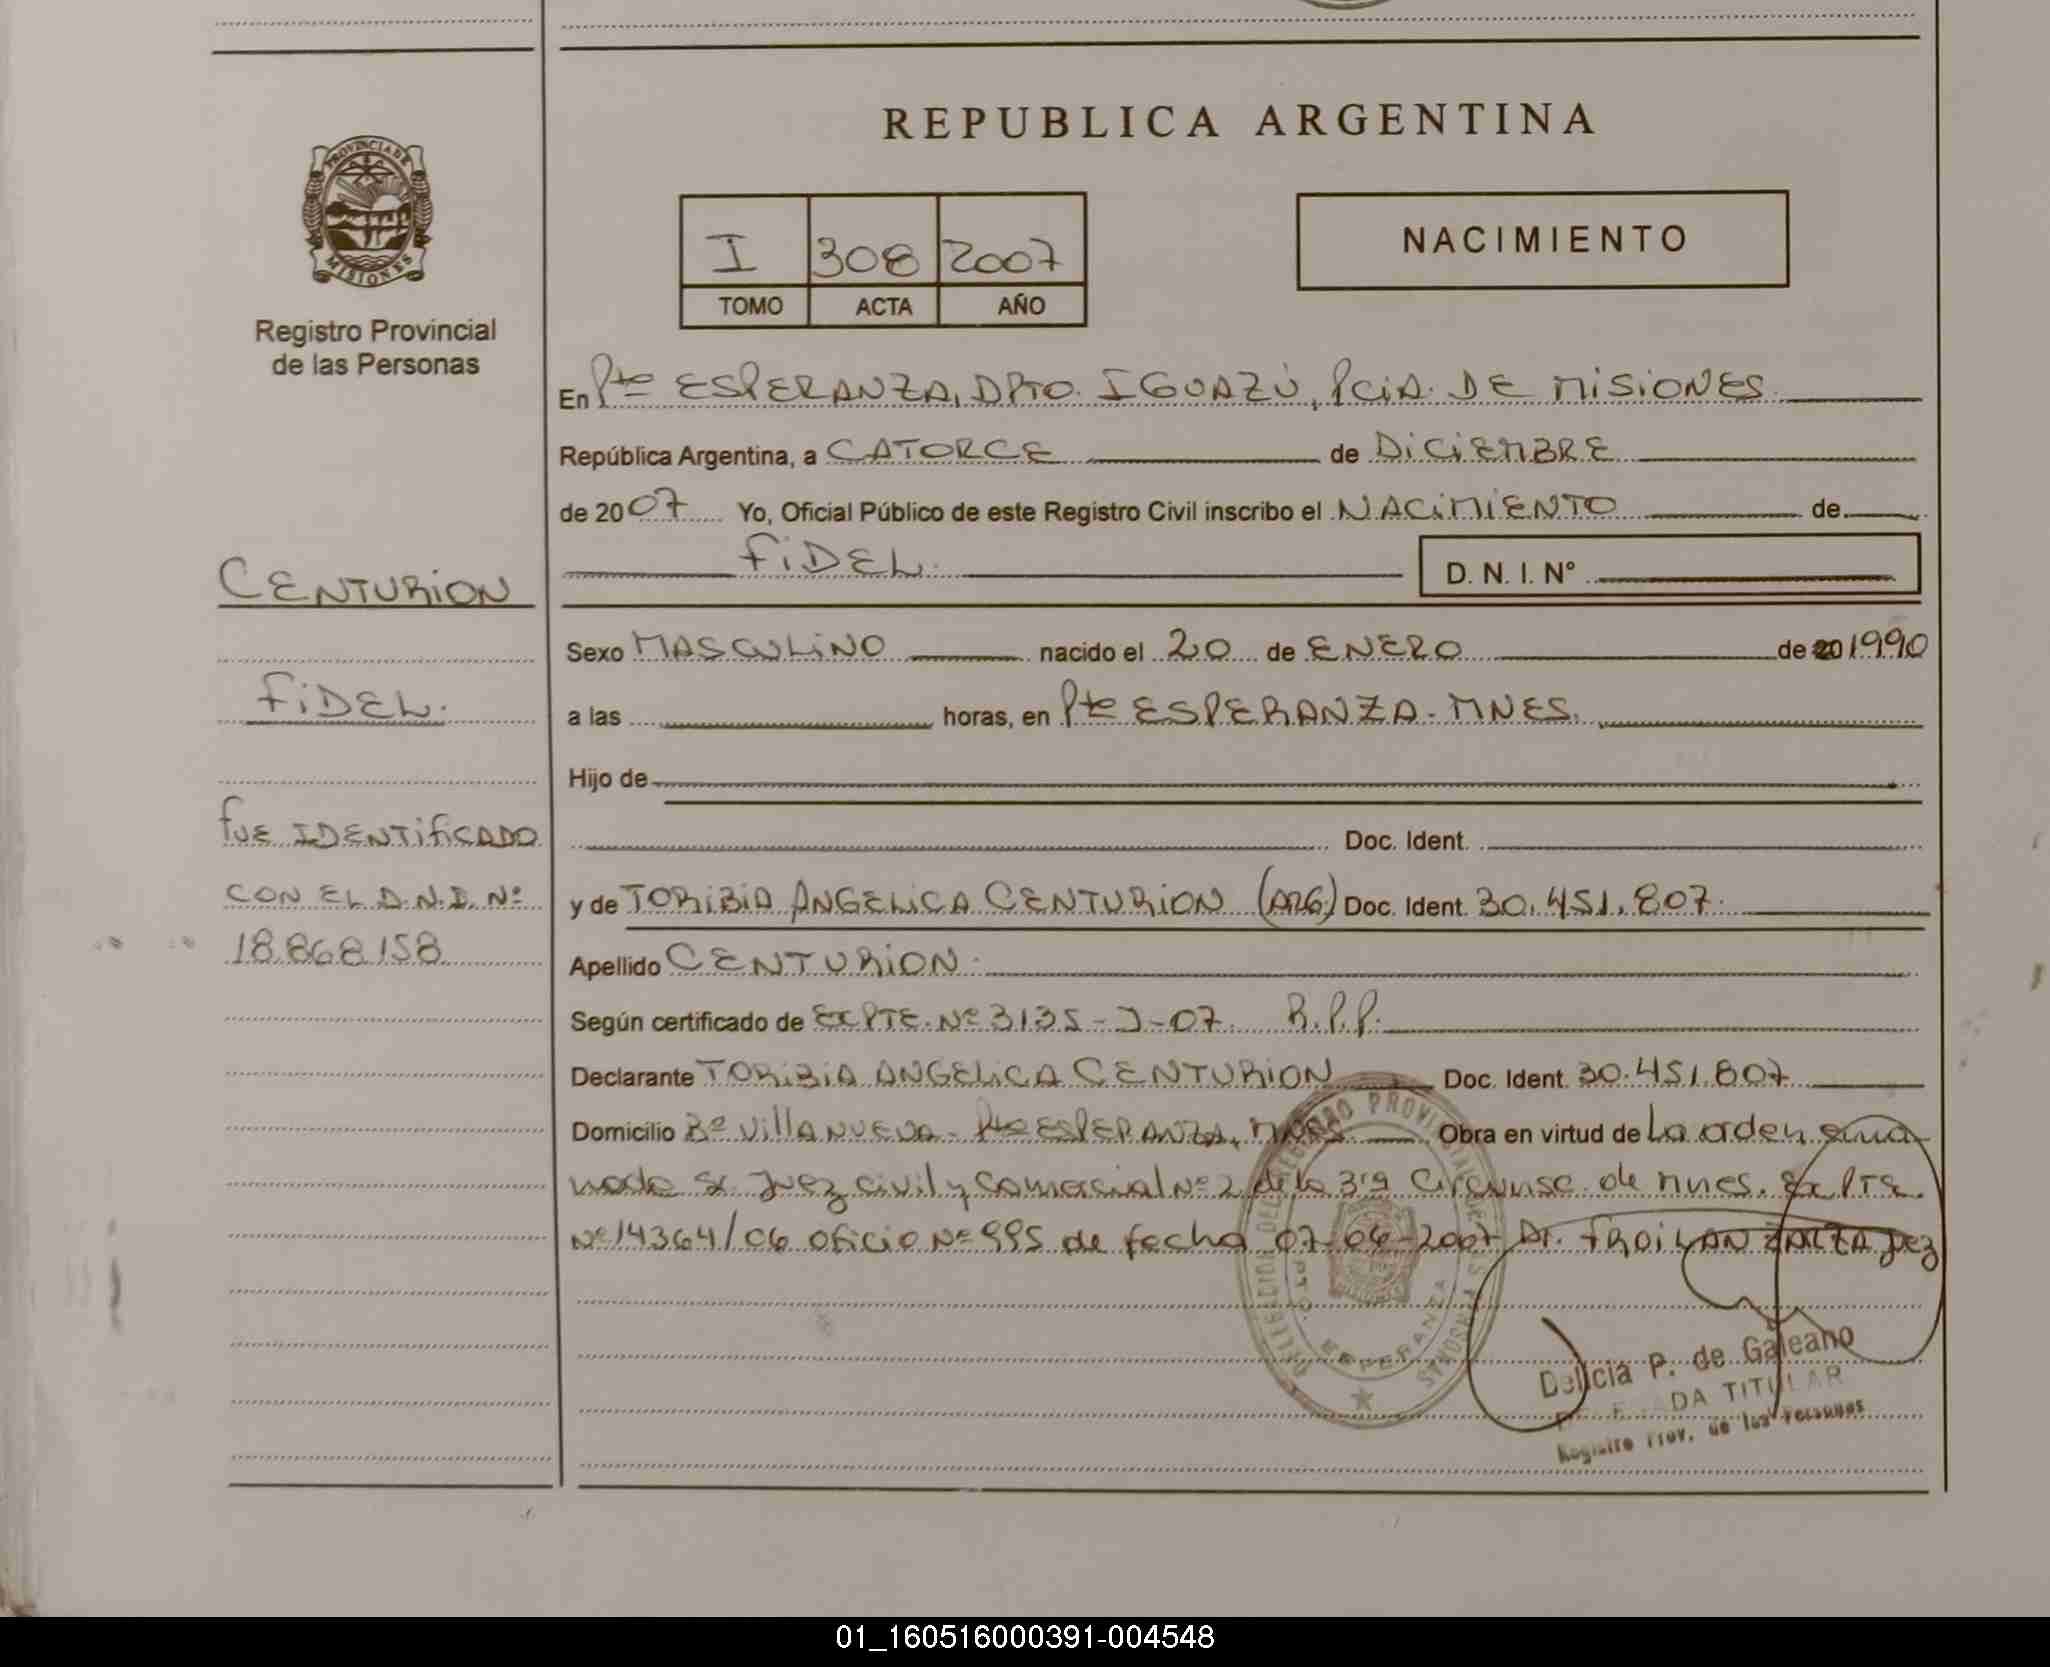 REPUBLICA ARGENTINA
PROVINCIA DE MISIONES
Registro Provincial
de las Personas
I 308 2007
TOMO ACTA AÑO
NACIMIENTO
En Pto ESPERANZA, DPTO. IGUAZÚ, PCIA. DE MISIONES
República Argentina, a CATORCE de DICIEMBRE
de 2007 Yo, Oficial Público de este Registro Civil inscribo el NACIMIENTO de
FIDEL. D. N. I. N°
CENTURION
FIDEL.
FUE IDENTIFICADO
CON EL D.N.I. Nº
18.868.158
Sexo MASCULINO nacido el 20 de ENERO de 20 1990
a las horas, en Pto ESPERANZA - MNES.
Hijo de
Doc. Ident.
y de TORIBIA ANGELICA CENTURION (ARG) Doc. Ident. 30.451.807.
Apellido CENTURION.
Según certificado de EXPTE. Nº 3135-J-07. R.P.P.
Declarante TORIBIA ANGELICA CENTURION Doc. Ident. 30.451.807
Domicilio Bº VILLA NUEVA - Pto ESPERANZA, MNES. Obra en virtud de La orden ema-
nada Sr. Juez civil y Comercial Nº 2 de la 3ra Circunsc. de mnes. Expte.
Nº 14364/06 oficio Nº 995 de fecha 07-06-2007 Dr. FROILAN ZARZA Juez
DELEGACION DEL REGISTRO PROVINCIAL DE LAS PERSONAS
PTO. ESPERANZA
Delicia P. de Galeano
DELEGADA TITULAR
Registro Prov. de las Personas
01_160516000391-004548